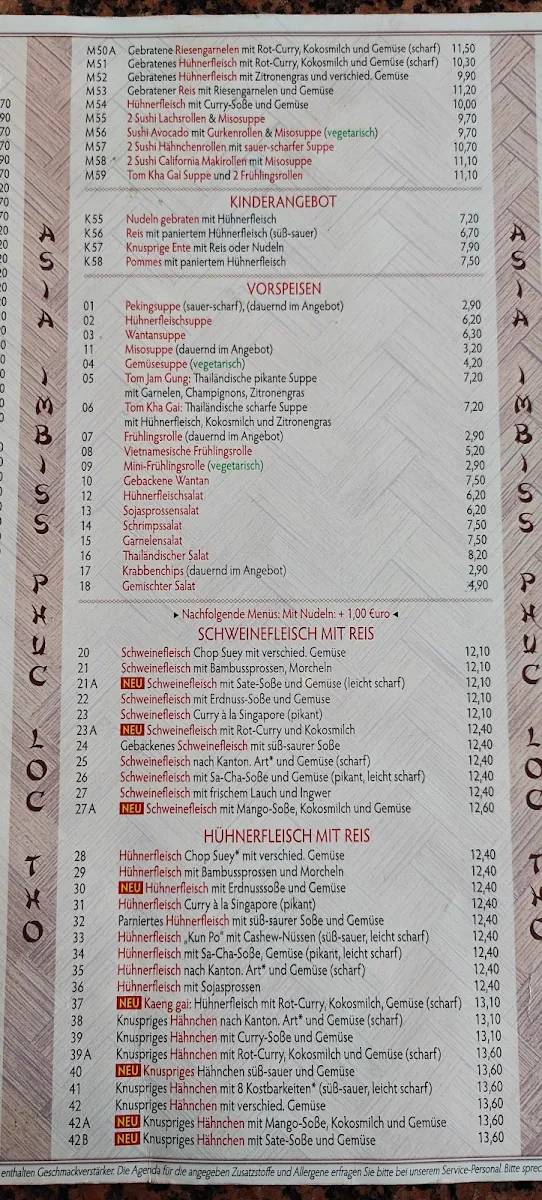 M50A Gebratene Riesengarnelen mit Rot-Curry, Kokosmilch und Gemüse (scharf) 11,50
M51 Gebratenes Hühnerfleisch mit Rot-Curry, Kokosmilch und Gemüse (scharf) 10,30
M52 Gebratenes Hühnerfleisch mit Zitronengras und verschied. Gemüse 9,90
M53 Gebratener Reis mit Riesengarnelen und Gemüse 11,20
M54 Hühnerfleisch mit Curry-Soße und Gemüse 10,00
M55 2 Sushi Lachsrollen & Misosuppe 9,70
M56 Sushi Avocado mit Gurkenrollen & Misosuppe (vegetarisch) 9,70
M57 2 Sushi Hähnchenrollen mit sauer-scharfer Suppe 10,70
M58 2 Sushi California Makirollen mit Misosuppe 11,10
M59 Tom Kha Gai Suppe und 2 Frühlingsrollen 11,10
KINDERANGEBOT
K55 Nudeln gebraten mit Hühnerfleisch 7,20
K56 Reis mit paniertem Hühnerfleisch (süß-sauer) 6,70
K57 Knusprige Ente mit Reis oder Nudeln 7,90
K58 Pommes mit paniertem Hühnerfleisch 7,50
VORSPEISEN
01 Pekingsuppe (sauer-scharf), (dauernd im Angebot) 2,90
02 Hühnerfleischsuppe 6,20
03 Wantansuppe 6,30
11 Misosuppe (dauernd im Angebot) 3,20
04 Gemüsesuppe (vegetarisch) 4,20
05 Tom Jam Gung: Thailändische pikante Suppe 7,20
mit Garnelen, Champignons, Zitronengras
06 Tom Kha Gai: Thailändische scharfe Suppe 7,20
mit Hühnerfleisch, Kokosmilch und Zitronengras
07 Frühlingsrolle (dauernd im Angebot) 2,90
08 Vietnamesische Frühlingsrolle 5,20
09 Mini-Frühlingsrolle (vegetarisch) 2,90
10 Gebackene Wantan 7,50
12 Hühnerfleischsalat 6,20
13 Sojasprossensalat 6,20
14 Schrimpssalat 7,50
15 Garnelensalat 7,50
16 Thailändischer Salat 8,20
17 Krabbenchips (dauernd im Angebot) 2,90
18 Gemischter Salat 4,90
▸ Nachfolgende Menüs: Mit Nudeln: + 1,00 €uro ◂
SCHWEINEFLEISCH MIT REIS
20 Schweinefleisch Chop Suey mit verschied. Gemüse 12,10
21 Schweinefleisch mit Bambussprossen, Morcheln 12,10
21 A NEU Schweinefleisch mit Sate-Soße und Gemüse (leicht scharf) 12,10
22 Schweinefleisch mit Erdnuss-Soße und Gemüse 12,10
23 Schweinefleisch Curry à la Singapore (pikant) 12,10
23 A NEU Schweinefleisch mit Rot-Curry und Kokosmilch 12,40
24 Gebackenes Schweinefleisch mit süß-saurer Soße 12,40
25 Schweinefleisch nach Kanton. Art* und Gemüse (scharf) 12,40
26 Schweinefleisch mit Sa-Cha-Soße und Gemüse (pikant, leicht scharf) 12,40
27 Schweinefleisch mit frischem Lauch und Ingwer 12,40
27 A NEU Schweinefleisch mit Mango-Soße, Kokosmilch und Gemüse 12,60
HÜHNERFLEISCH MIT REIS
28 Hühnerfleisch Chop Suey* mit verschied. Gemüse 12,40
29 Hühnerfleisch mit Bambussprossen und Morcheln 12,40
30 NEU Hühnerfleisch mit Erdnusssoße und Gemüse 12,40
31 Hühnerfleisch Curry à la Singapore (pikant) 12,40
32 Parniertes Hühnerfleisch mit süß-saurer Soße und Gemüse 12,40
33 Hühnerfleisch „Kun Po" mit Cashew-Nüssen (süß-sauer, leicht scharf) 12,40
34 Hühnerfleisch mit Sa-Cha-Soße, Gemüse (pikant, leicht scharf) 12,40
35 Hühnerfleisch nach Kanton. Art* und Gemüse (scharf) 12,40
36 Hühnerfleisch mit Sojasprossen 12,40
37 NEU Kaeng gai: Hühnerfleisch mit Rot-Curry, Kokosmilch, Gemüse (scharf) 13,10
38 Knuspriges Hähnchen nach Kanton. Art* und Gemüse (scharf) 13,10
39 Knuspriges Hähnchen mit Curry-Soße und Gemüse 13,10
39 A Knuspriges Hähnchen mit Rot-Curry, Kokosmilch und Gemüse (scharf) 13,60
40 NEU Knuspriges Hähnchen süß-sauer und Gemüse 13,60
41 Knuspriges Hähnchen mit 8 Kostbarkeiten* (süß-sauer, leicht scharf) 13,60
42 Knuspriges Hähnchen mit verschied. Gemüse 13,60
42 A NEU Knuspriges Hähnchen mit Mango-Soße, Kokosmilch und Gemüse 13,60
42 B NEU Knuspriges Hähnchen mit Sate-Soße und Gemüse 13,60
enthalten Geschmackverstärker. Die Agenda für die angegeben Zusatzstoffe und Allergene erfragen Sie bitte bei unserem Service-Personal. Bitte
ASIA IMBISS PHUC LOC THO
ASIA IMBISS PHUC LOC THO